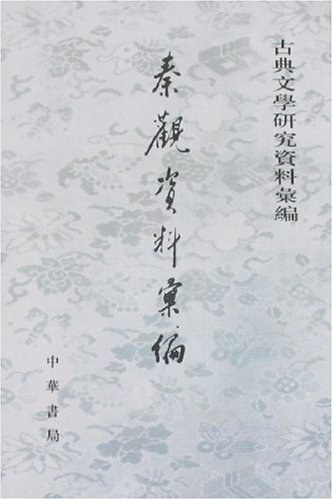 古典文學研究資料彙編
秦觀资料彙编
中華書局